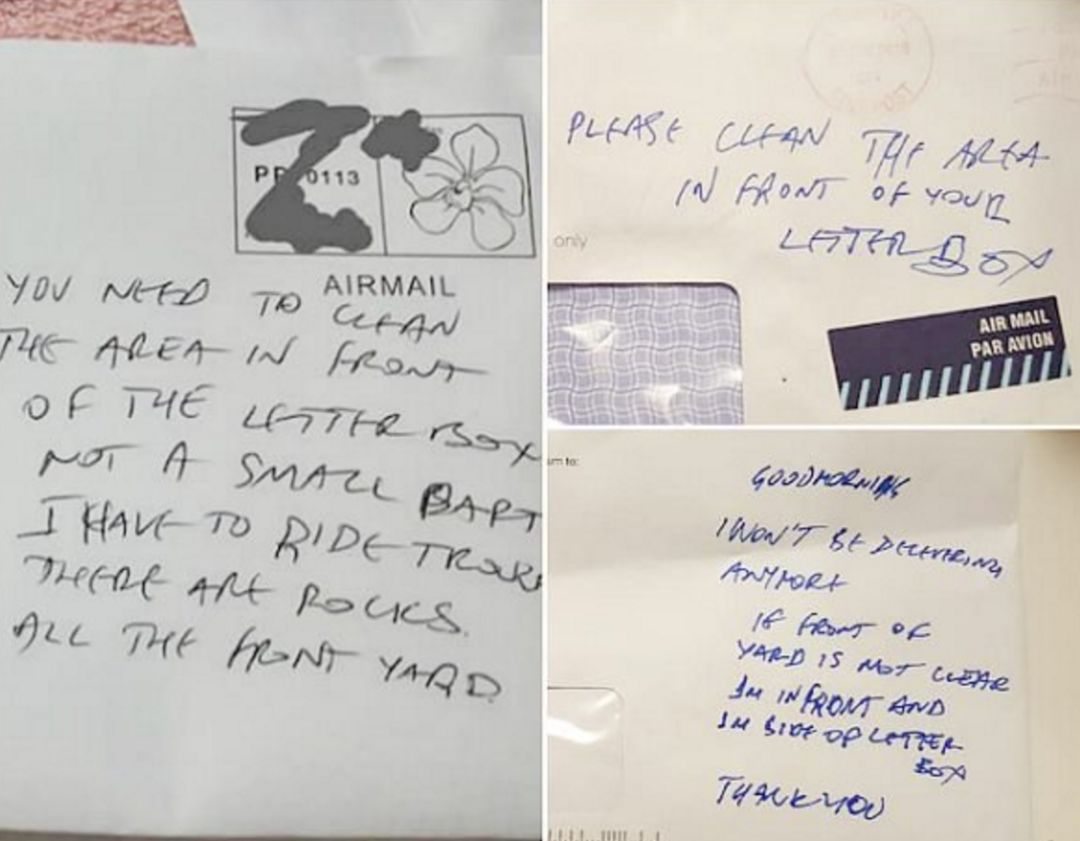 PP 0113
AIRMAIL
YOU NEED TO CLEAN
THE AREA IN FRONT
OF THE LETTER BOX
NOT A SMALL PART
I HAVE TO RIDE
THERE ARE ROCKS.
ALL THE FRONT YARD
PLEASE CLEAN THE AREA
IN FRONT OF YOUR
LETTER BOX
only
AIR MAIL
PAR AVION
to:
GOODMORNING
I WON'T BE DELEVERING
ANYMORE
IF FRONT OF
YARD IS NOT CLEAR
1M IN FRONT AND
1M SIDE OF LETTER
BOX
THANK YOU